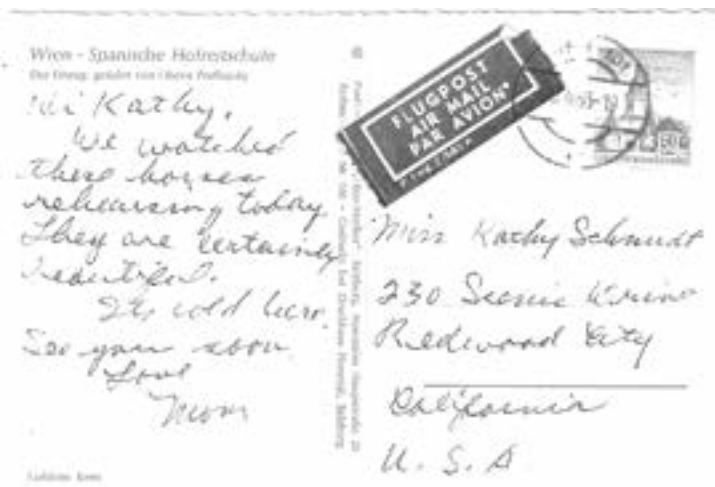 Wien - Spanische Hofreitschule
Der Einzug, geführt von Oberst Podhajsky
Hi Kathy,
We watched
these horses
rehearsing today
They are certainly
beautiful.
It's cold here.
See you soon
Love
Mom
FLUGPOST
AIR MAIL
PAR AVION
Miss Kathy Schmidt
230 Scenic Drive
Redwood City
California
U. S. A